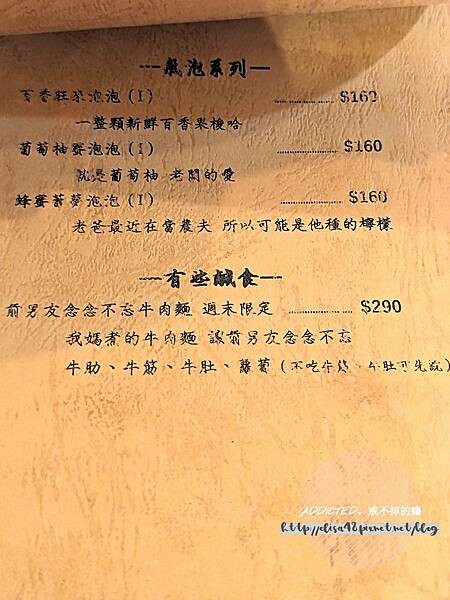 ---氣泡系列---
百香狂泉泡泡(I) ........ $160
一整顆新鮮百香果梭哈
葡萄柚蜜泡泡(I) ........ $160
就是葡萄柚 老闆的愛
蜂蜜舊夢泡泡(I) ........ $160
老爸最近在當農夫 所以可能是他種的檸檬
---有些鹹食---
前男友念念不忘牛肉麵 週末限定 ........ $290
我媽煮的牛肉麵 讓前男友念念不忘
牛肋、牛筋、牛肚、蘿蔔(不吃牛筋、牛肚可先說)
ADDICTED。戒不掉的癮
http://elisa98.pixnet.net/blog